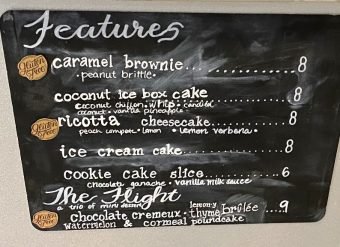 Features
Gluten Free
caramel brownie... 8
• peanut brittle •
coconut ice box cake 8
coconut chiffon • whip • candied
coconut • vanilla pineapple •
Gluten Free
ricotta cheesecake 8
peach compote • lemon • lemon verbena •
ice cream cake 8
cookie cake slice 6
chocolate ganache • vanilla milk sauce
The Flight
a trio of mini desserts
lemon-y
Gluten Free
chocolate cremeux • thyme brûlée 9
watermelon & cormeal poundcake